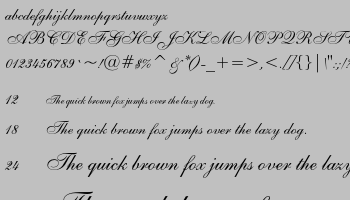 abcdefghijklmnopqrstuvwxyz
ABCDEFGHIJKLMNOPQRST
0123456789·~!@#$%^&*()-_+=>,<.//{}|\":;/?
12 The quick brown fox jumps over the lazy dog.
18 The quick brown fox jumps over the lazy dog.
24 The quick brown fox jumps over the lazy